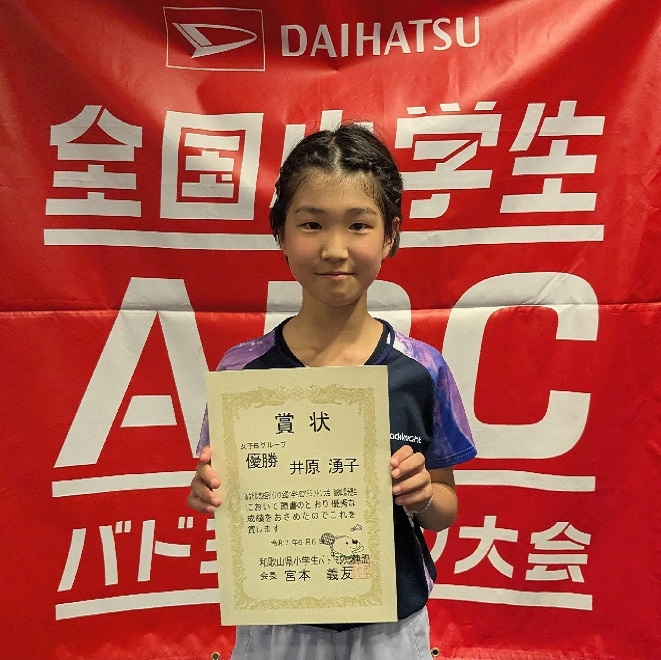 DAIHATSU
全国小学生
ABC
バド
大会
賞状
女子Bグループ
優勝 井原 湧子
において頭書のとおり優秀な
成績をおさめたのでこれを
賞します
令和7年6月8日
和歌山県小学生バドミントン連盟
会長 宮本 義友